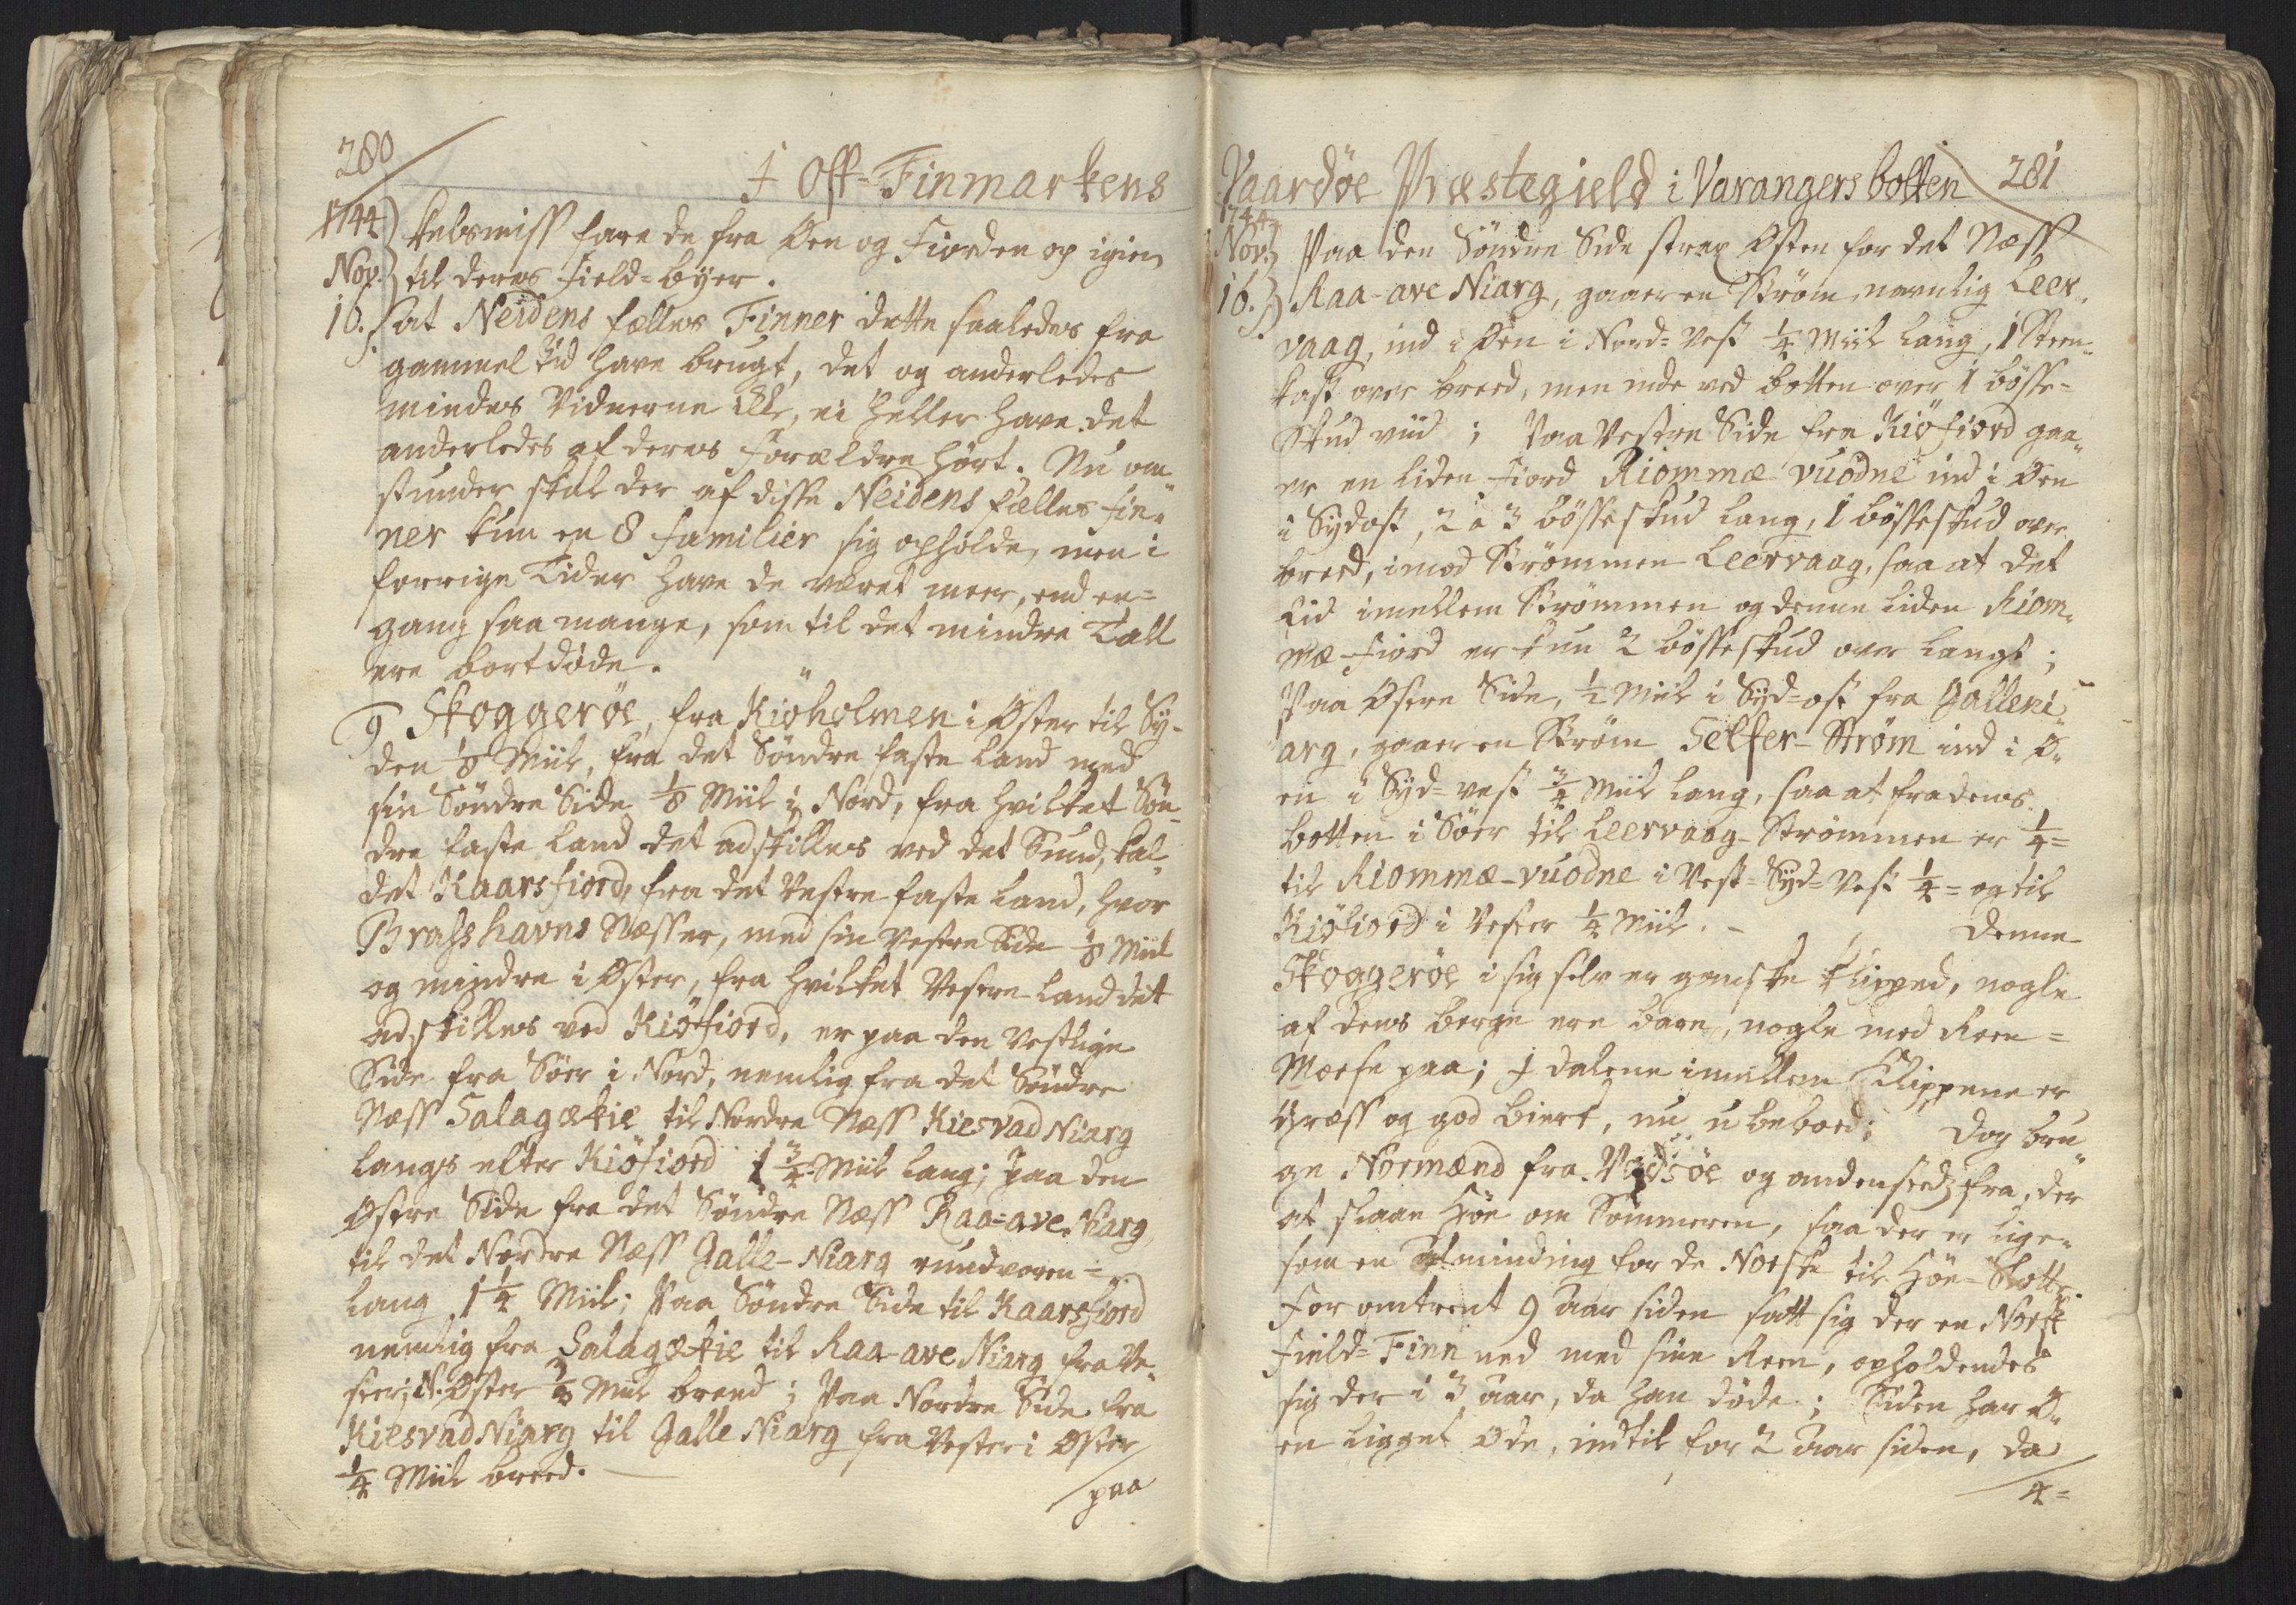 280
I Ost-Finmarkens
1744
Nov.
16.
kelsmiss fare de fra Øen og Fiorden op igien
til deres Field-byer.
at Neidens fælles Finner dette saaledes fra
gammel tid have brugt, det og anderledes
mindes Vidnerne icke, ei heller have det
anderledes af deres Forældre hørt. Nu om-
stunder skal der af disse Neidens fælles Fin-
ner kun en 8 familier sig opholde, men i
forrige Tider have de været meer, end en-
gang saa mange, som til det mindre Tall
ere bortdøde.
9 Skoggerøe, fra Kiøholmen i Øster til Sy-
den 1/8 Miil, fra det Søndre faste Land med
sin Søndre Side 1/8 Miil i Nord, fra hvilket Søn-
dre faste Land det adskilles ved det Sund, kal-
det Kaarsfiord, fra det Vestre faste Land, hvor
Brasshavns Næss er, med sin Vestre Side 1/8 Miil
og mindre i Øster, fra hvilket Vestre Land det
adskilles ved Kiøfiord, er paa den Vestlige
Side fra Søer i Nord, nemlig fra det Søndre
Næss Salagækie til Nordre Næss Kiesvad Niarg
langs efter Kiøfiord 1 3/4 Miil lang; paa den
Østre Side fra det Søndre Næss Raa-ave Niarg
til det Nordre Næss Jalle-Niarg rundvoren-
lang 1 1/4 Miil; Paa Søndre Side til Kaarsfiord
nemlig fra Salagækie til Raa-ave Niarg fra Ve-
ster i N. Øster 3/4 Miil breed; Paa Nordre Side fra
Kiesvad Niarg til Jalle Niarg fra Vester i Øster
1/4 Miil breed.
paa
Vaardøe Præstegield i Varangersbotten 281
1744
Nov.
16.
Paa den Søndre Side strax Østen for det Næss
Raa-ave Niarg, gaaer en Strøm, navnlig Leer-
vaag, ind i Øen i Nord-Vest 1/4 Miil lang, 1 Steen-
kast over breed, men inde ved botten over 1 bøsse-
Skud viid; Paa Vestre Side fra Kiøfiord gaa-
er en liden Fiord Riommæ vuodne ind i Øen
i Sydost, 2 à 3 bøsseskud lang, 1 bøsseskud over
breed, imod Strømmen Leervaag, saa at det
Eid imellem Strømmen og denne liden Riom-
mæ-Fiord er kun 2 bøsseskud over langt;
Paa Østre Side, 1/2 Miil i Syd-ost fra Jalleni-
arg, gaaer en Strøm Selfer-Strøm ind i Ø-
en i Syd-vest 3/4 Miil lang, saa at fra dens
botten i Søer til Leervaag-Strømmen er 1/4-
til Riommæ-vuodne i Vest-Syd-Vest 1/4- og til
Kiøfiord i Vester 1/4 Miil. - Denne
Skoggerøe i sig selv er ganske klipped, nogle
af dens berge ere bare, nogle med Reen-
Maase paa; I dalene imellem Klippene er
Græss og god bierk, nu ubeboed; Dog bru-
ge Normænd fra Vadsøe og andensteds fra, der
at slaae Høe om Sommeren, saa der er lige-
som en Alminding for de Norske til Høe-Slotte.
For omtrent 9 Aar siden satt sig der en Norsk
Field-Finn ned med sine Reen, opholdendes
sig der i 3 Aar, da han døde; Siden har Ø-
en ligget øde, indtil for 2 Aar siden, da
4-